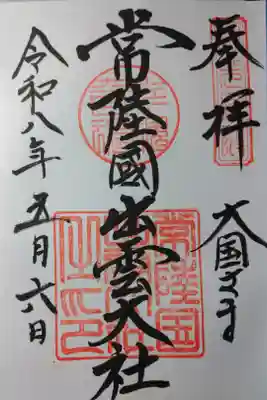 奉拝
大国さま
常陸國出雲大社
令和八年五月六日
常陸国
之印